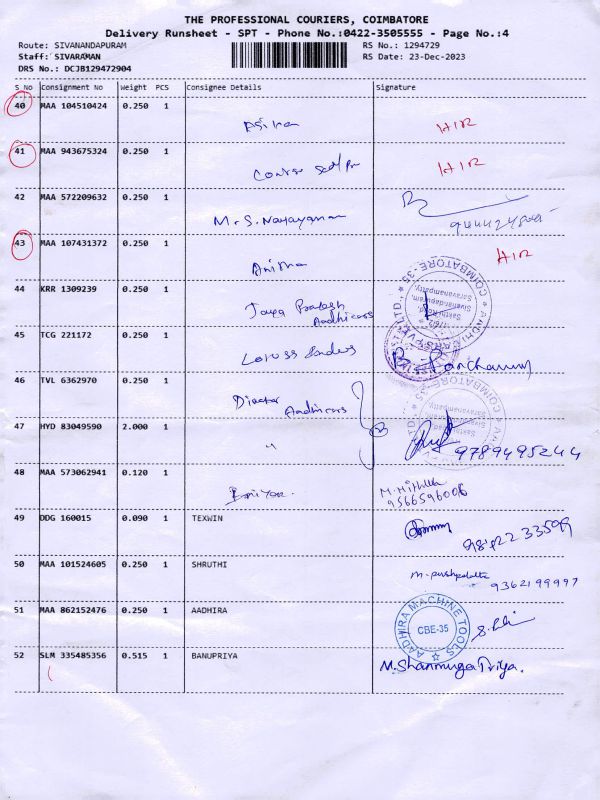 THE PROFESSIONAL COURIERS, COIMBATORE
Delivery Runsheet - SPT - Phone No.:0422-3505555 - Page No.:4
Route: SIVANANDAPURAM RS No.: 1294729
Staff: SIVARAMAN RS Date: 23-Dec-2023
DRS No.: DCJB129472904
S No Consignment No Weight PCS Consignee Details Signature
40 MAA 104510424 0.250 1
HIR
41 MAA 943675324 0.250 1
HIR
42 MAA 572209632 0.250 1
M.S. Narayanan
43 MAA 107431372 0.250 1
HIR
44 KRR 1309239 0.250 1
Jaya Prakash
Aadhi cars
45 TCG 221172 0.250 1
46 TVL 6362970 0.250 1
Director
Aadhi cars
47 HYD 83049590 2.000 1
"
9789495244
48 MAA 573062941 0.120 1
M. Mithilla
9566596006
49 DDG 160015 0.090 1 TEXWIN
50 MAA 101524605 0.250 1 SHRUTHI
9362199997
51 MAA 862152476 0.250 1 AADHIRA
AADHIRA MACHINE TOOLS
CBE-35
52 SLM 335485356 0.515 1 BANUPRIYA
M. Shanmuga Priya.